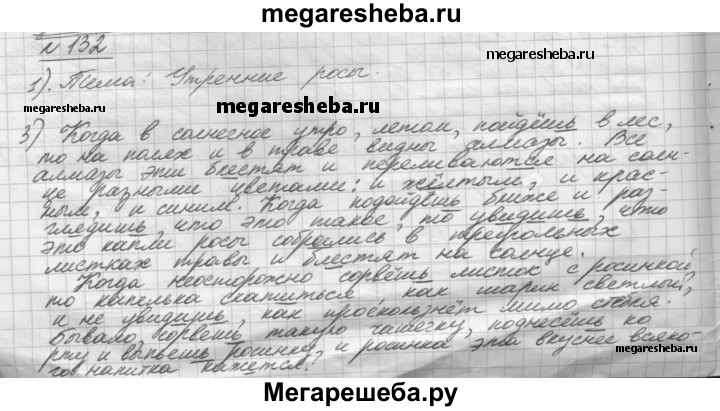 megaresheba.ru
№ 132
megaresheba.ru
1). Тема: Утренние росы.
megaresheba.ru
megaresheba.ru
3) Когда в солнечное утро, летом, пойдёшь в лес,
то на полях и в траве видны алмазы. Все
алмазы эти блестят и переливаются на солн-
це разными цветами: и жёлтым, и крас-
ным, и синим. Когда подойдёшь ближе и раз-
глядишь, что это такое, то увидишь, что
это капли росы собрались в треугольных
листках травы и блестят на солнце.
Когда неосторожно сорвёшь листок с росинкой,
то капелька скатиться, как шарик светлый,
и не увидишь, как проскользнёт мимо стебля.
Бывало, сорвёшь такую чашечку, поднесёшь ко
рту и выпьешь росинку, и росинка эта вкуснее всяко-
го напитка кажется.
megaresheba.ru
megaresheba.ru
Мегарешеба.ру